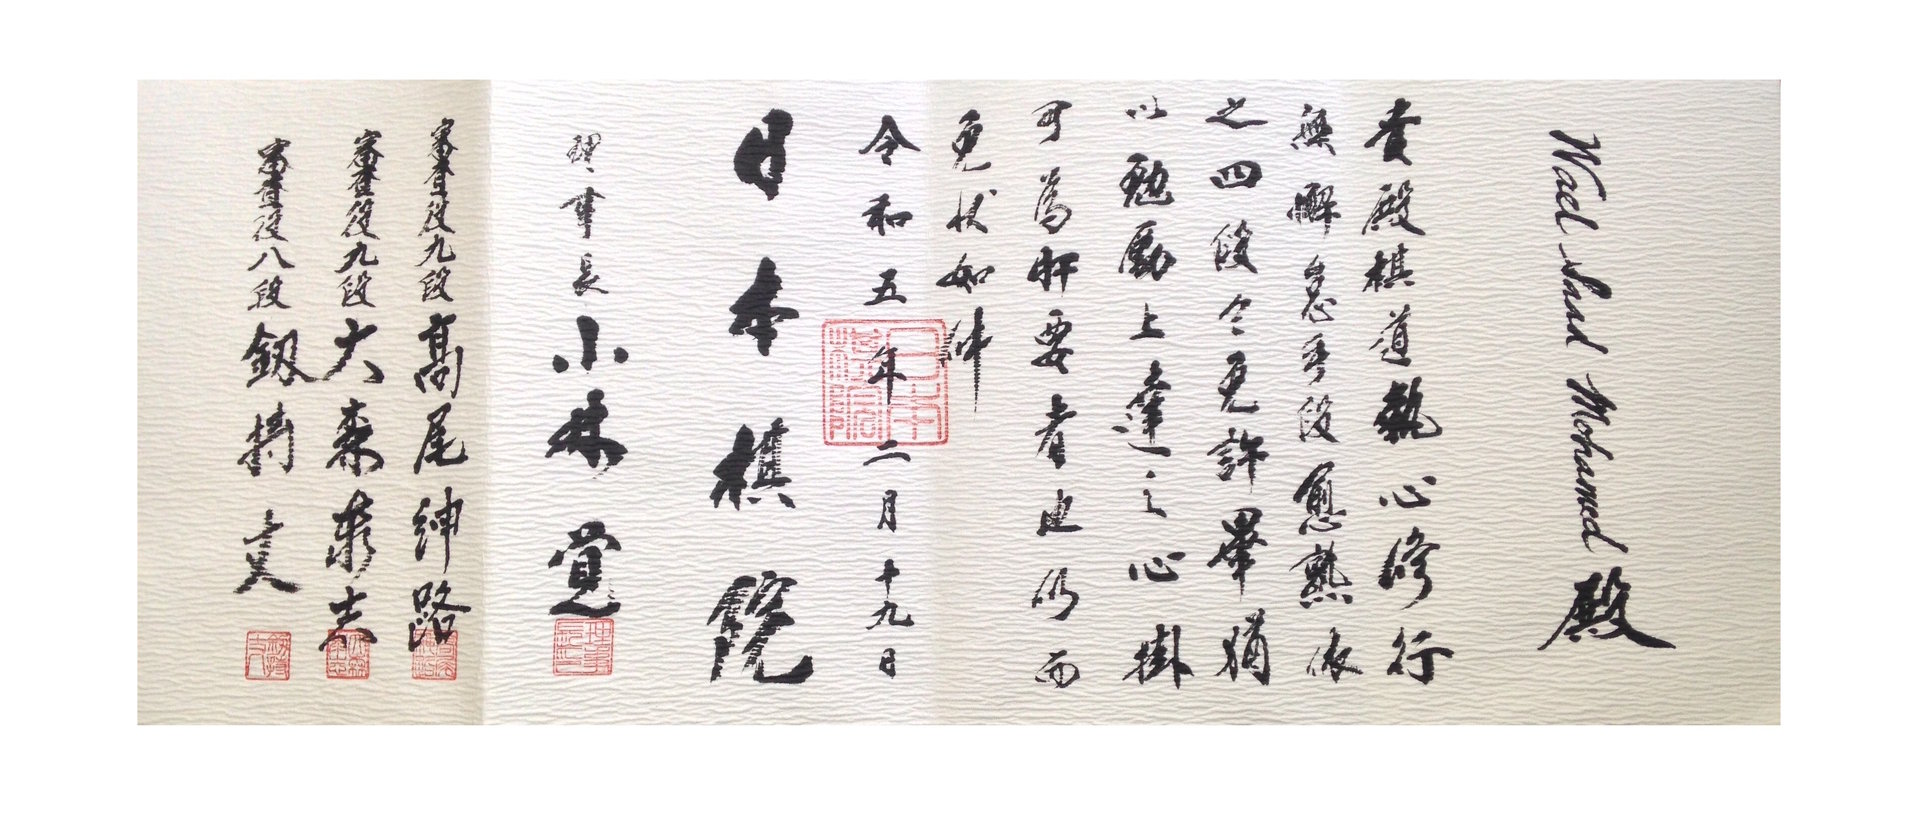 Wael Saad Mohamed 殿
貴殿棋道執心修行
無懈怠手段愈熟依
之四段令免許畢猶
以勉勵上達之心掛
可為肝要者也仍而
免状如件
令和五年二月十九日
日本棋院
理事長 小林覚
審査役九段 髙尾紳路
審査役九段 大森泰志
審査役八段 釼持丈
日本棋院
理事長印